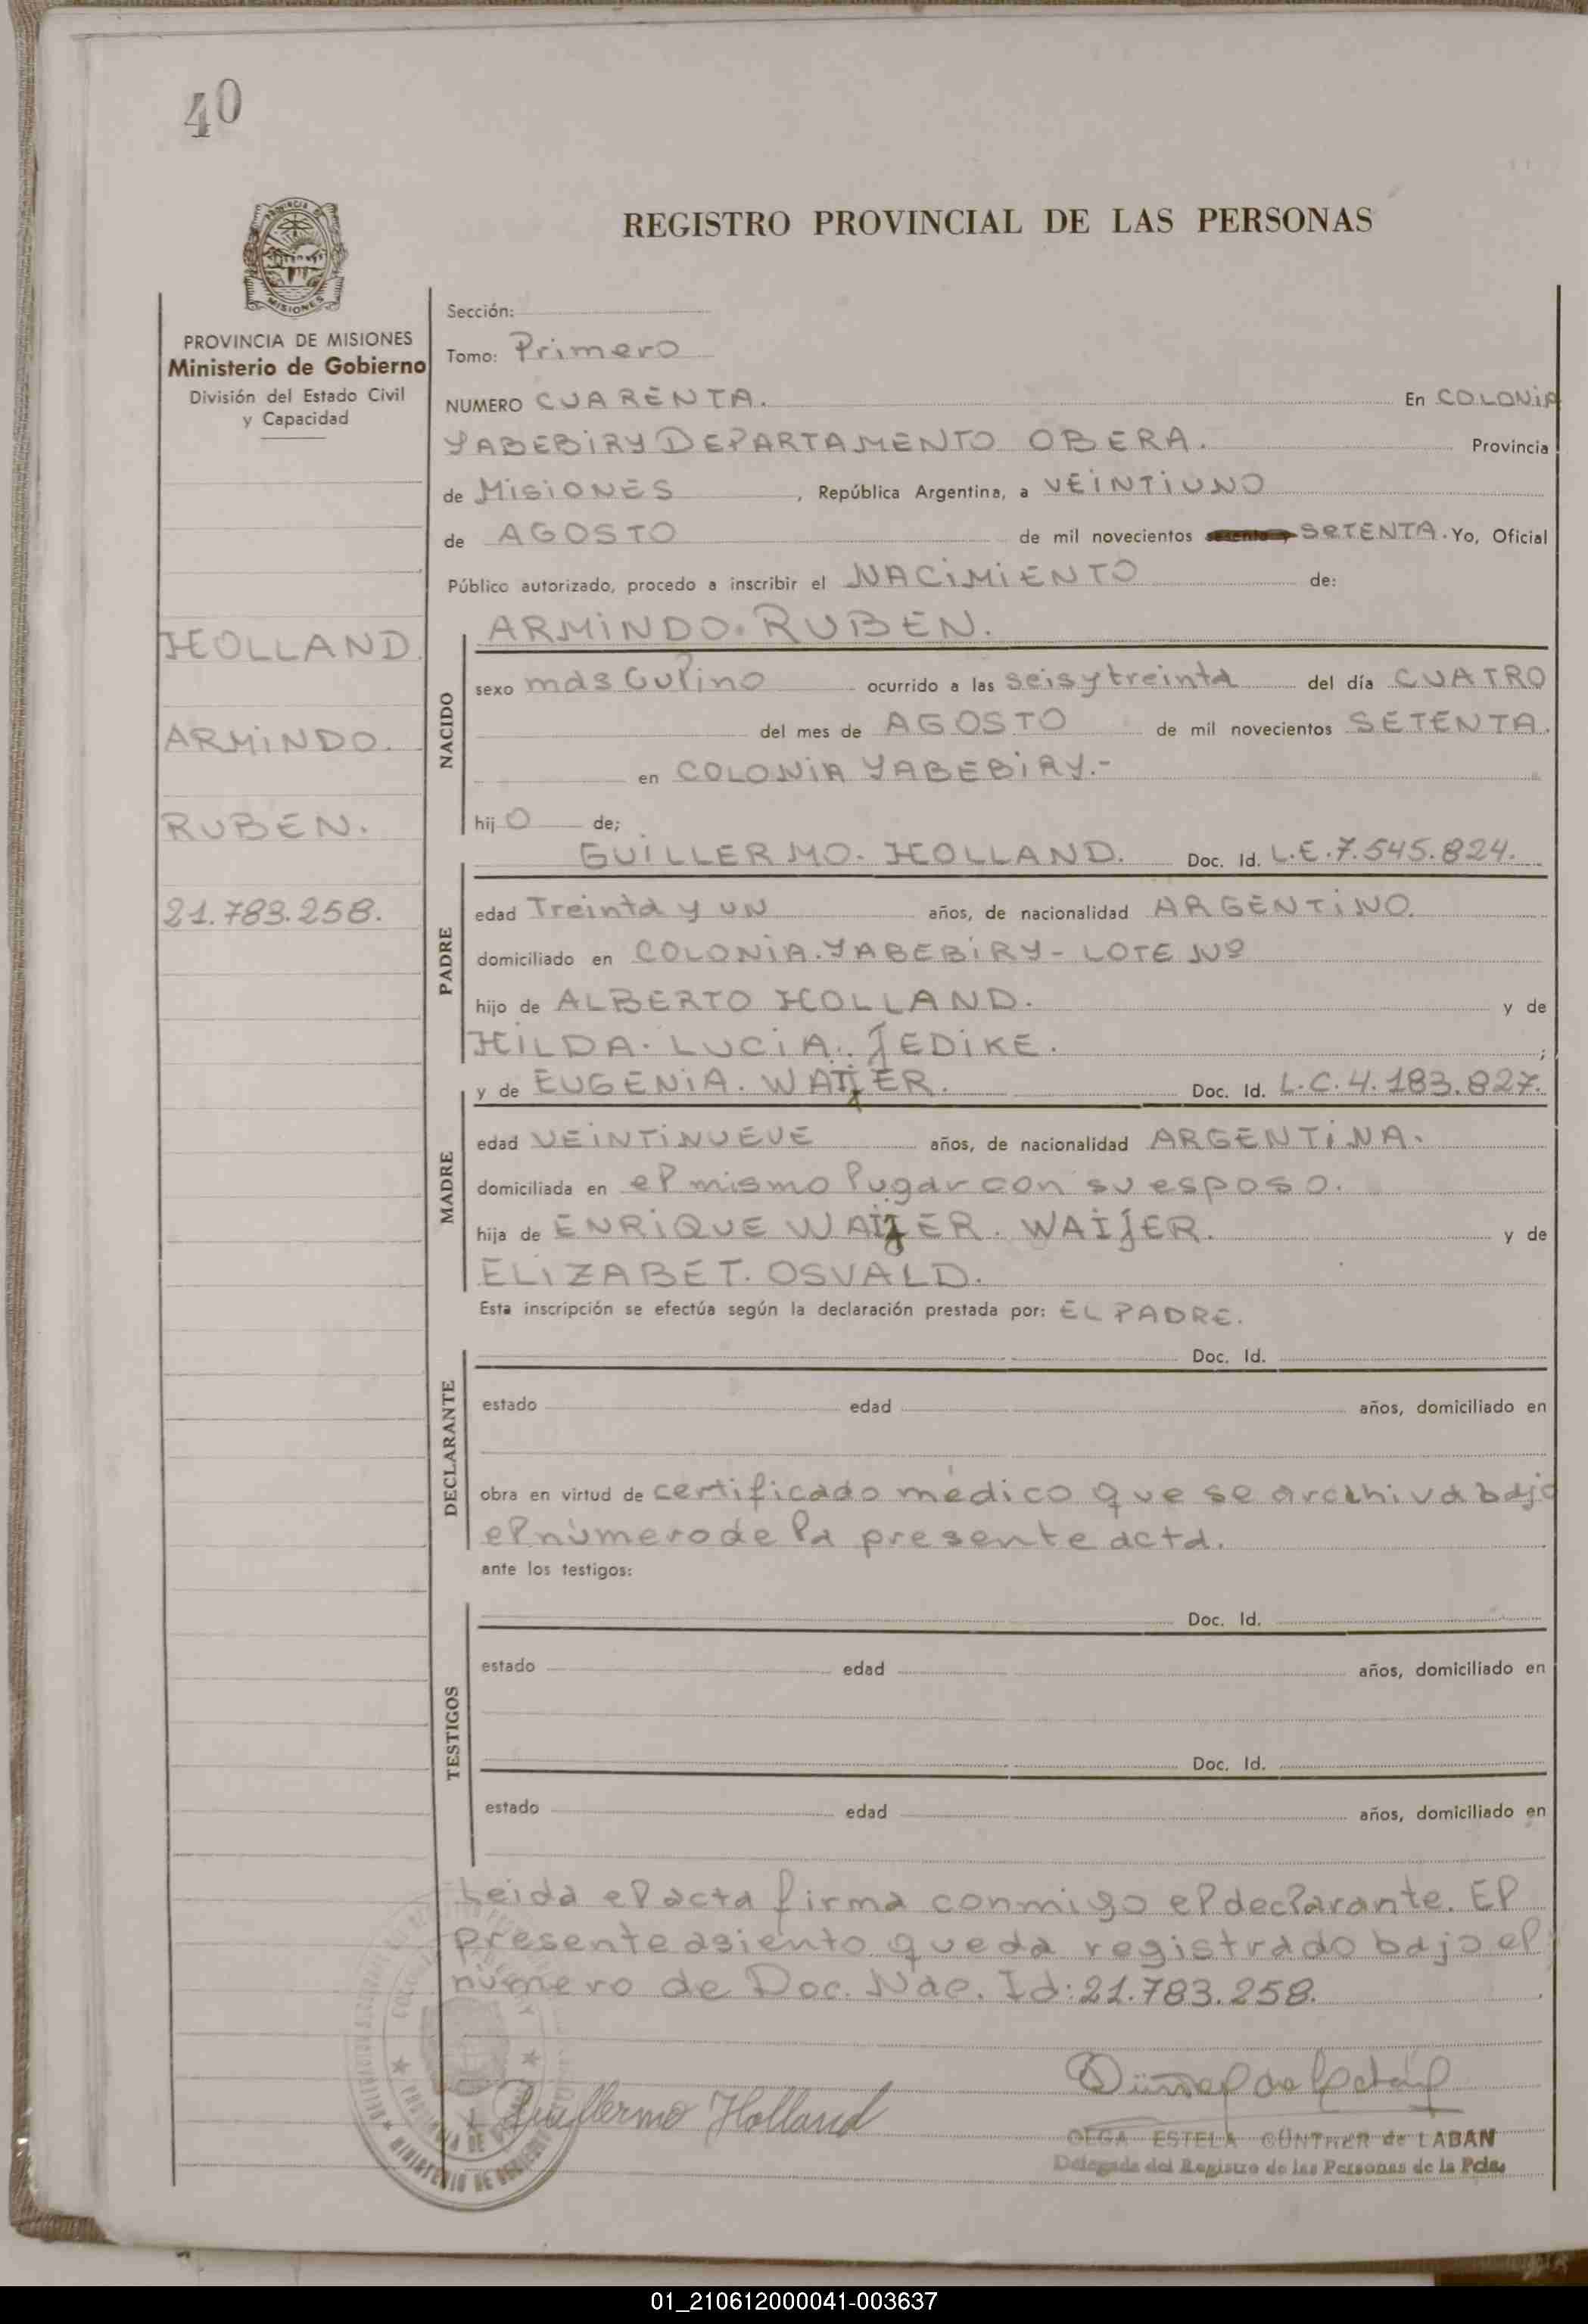 40
REGISTRO PROVINCIAL DE LAS PERSONAS
MISIONES
PROVINCIA DE MISIONES
Ministerio de Gobierno
División del Estado Civil
y Capacidad
HOLLAND.
ARMINDO.
RUBEN.
21.783.258.
Sección:
Tomo: Primero
NUMERO CUARENTA. En COLONIA
YABEBIRY DEPARTAMENTO OBERA. Provincia
de MISIONES, República Argentina, a VEINTIUNO
de AGOSTO de mil novecientos SETENTA. Yo, Oficial
Público autorizado, procedo a inscribir el NACIMIENTO de:
NACIDO
ARMINDO. RUBEN.
sexo masculino ocurrido a las seis y treinta del día CUATRO
del mes de AGOSTO de mil novecientos SETENTA.
en COLONIA YABEBIRY.-
hijo de;
PADRE
GUILLERMO. HOLLAND. Doc. Id. L.E.7.545.824.
edad Treinta y un años, de nacionalidad ARGENTINO.
domiciliado en COLONIA. YABEBIRY - LOTE Nº
hijo de ALBERTO HOLLAND. y de
HILDA. LUCIA. JEDIKE. ;
MADRE
y de EUGENIA. Doc. Id. L.C.4.183.827.
edad VEINTINUEVE años, de nacionalidad ARGENTINA.
domiciliada en el mismo lugar con su esposo.
hija de ENRIQUE WAIJER. y de
ELIZABET. OSVALD.
Esta inscripción se efectúa según la declaración prestada por: EL PADRE.
DECLARANTE
Doc. Id.
estado edad años, domiciliado en
obra en virtud de certificado médico que se archiva bajo
el número de la presente acta.
ante los testigos:
TESTIGOS
Doc. Id.
estado edad años, domiciliado en
Doc. Id.
estado edad años, domiciliado en
Leida el acta firma conmigo el declarante. El
presente asiento queda registrado bajo el
número de Doc. Nac. Id: 21.783.258.
Guillermo Holland
OLGA ESTELA GÜNTHER de LABAN
Delegada del Registro de las Personas de la Pcia.
MINISTERIO DE GOBIERNO
01_210612000041-003637